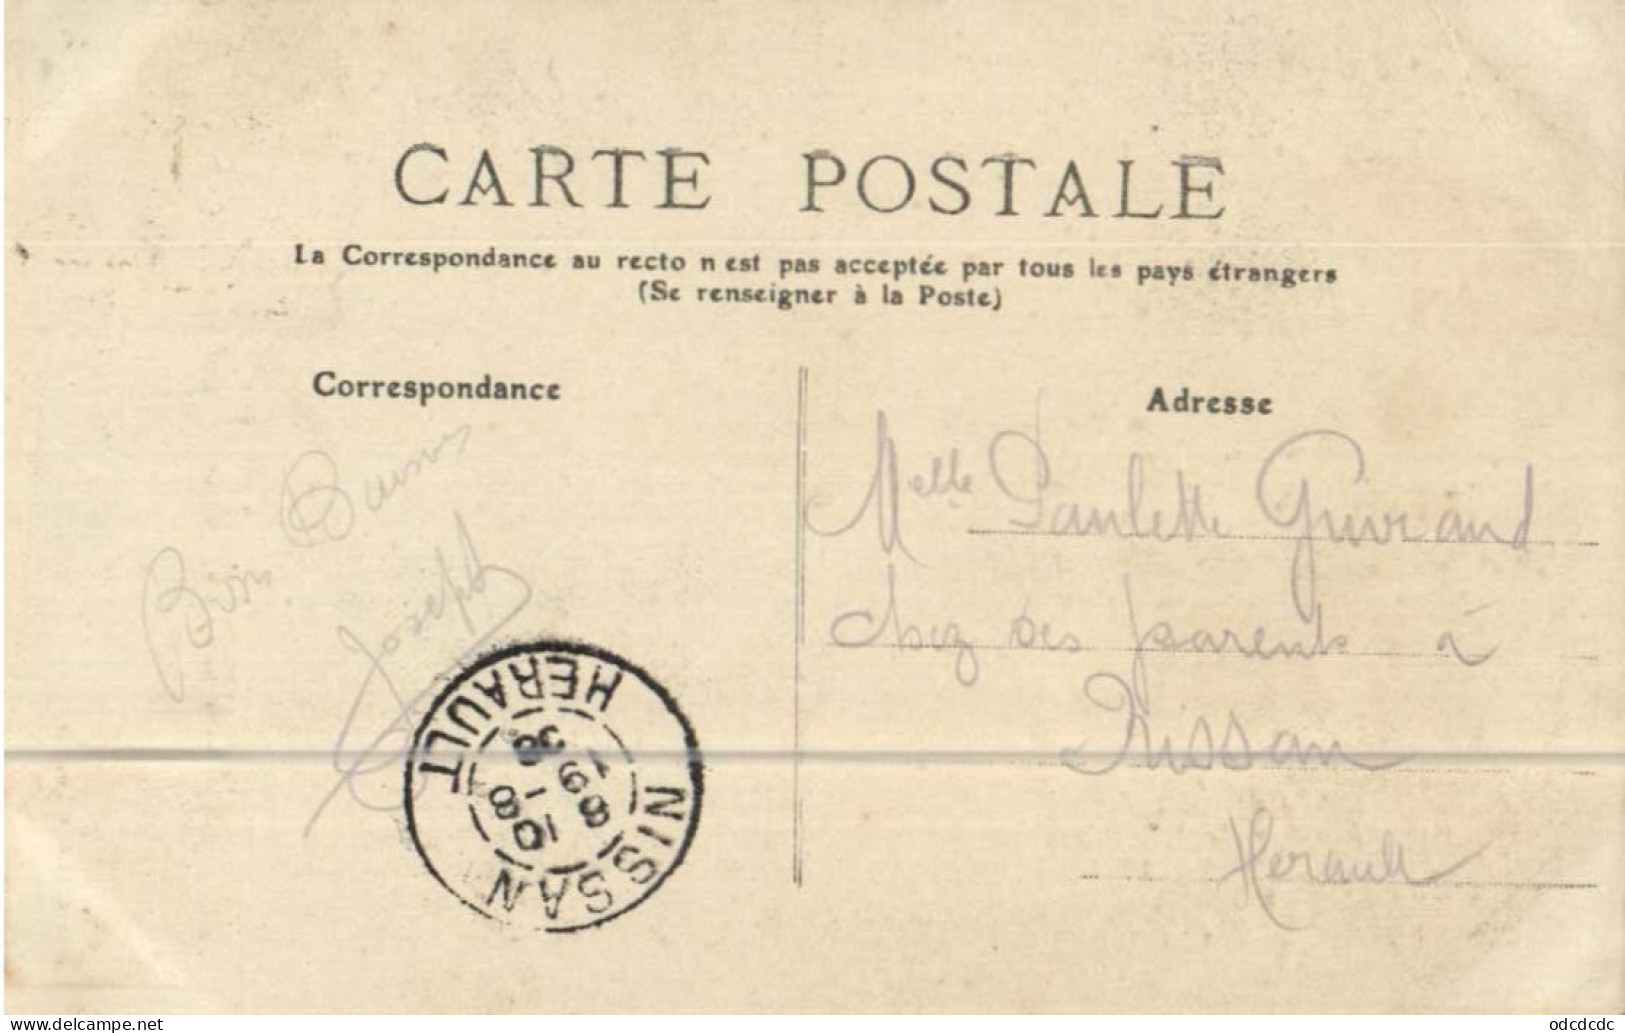 CARTE POSTALE
La Correspondance au recto n est pas acceptée par tous les pays étrangers
(Se renseigner à la Poste)
Correspondance
Adresse
Bons Baisers
Joseph
Melle Paulette Guiraud
chez ses parents à
Nissan
Herault
NISSAN
HERAULT
www.delcampe.net
odcdcdc